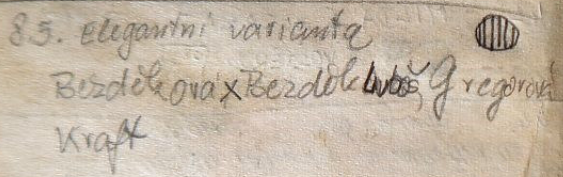 8.5. Elegantní varianta
Bezděková x Bezděk Luboš, Gregorová
Kraft